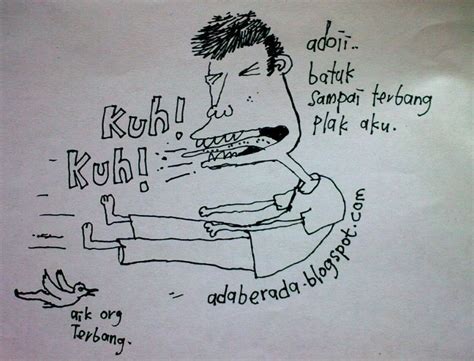 adoii..
batuk
sampai terbang
plak aku.
Kuh!
Kuh!
adaberada.blogspot.com
aik org
Terbang.